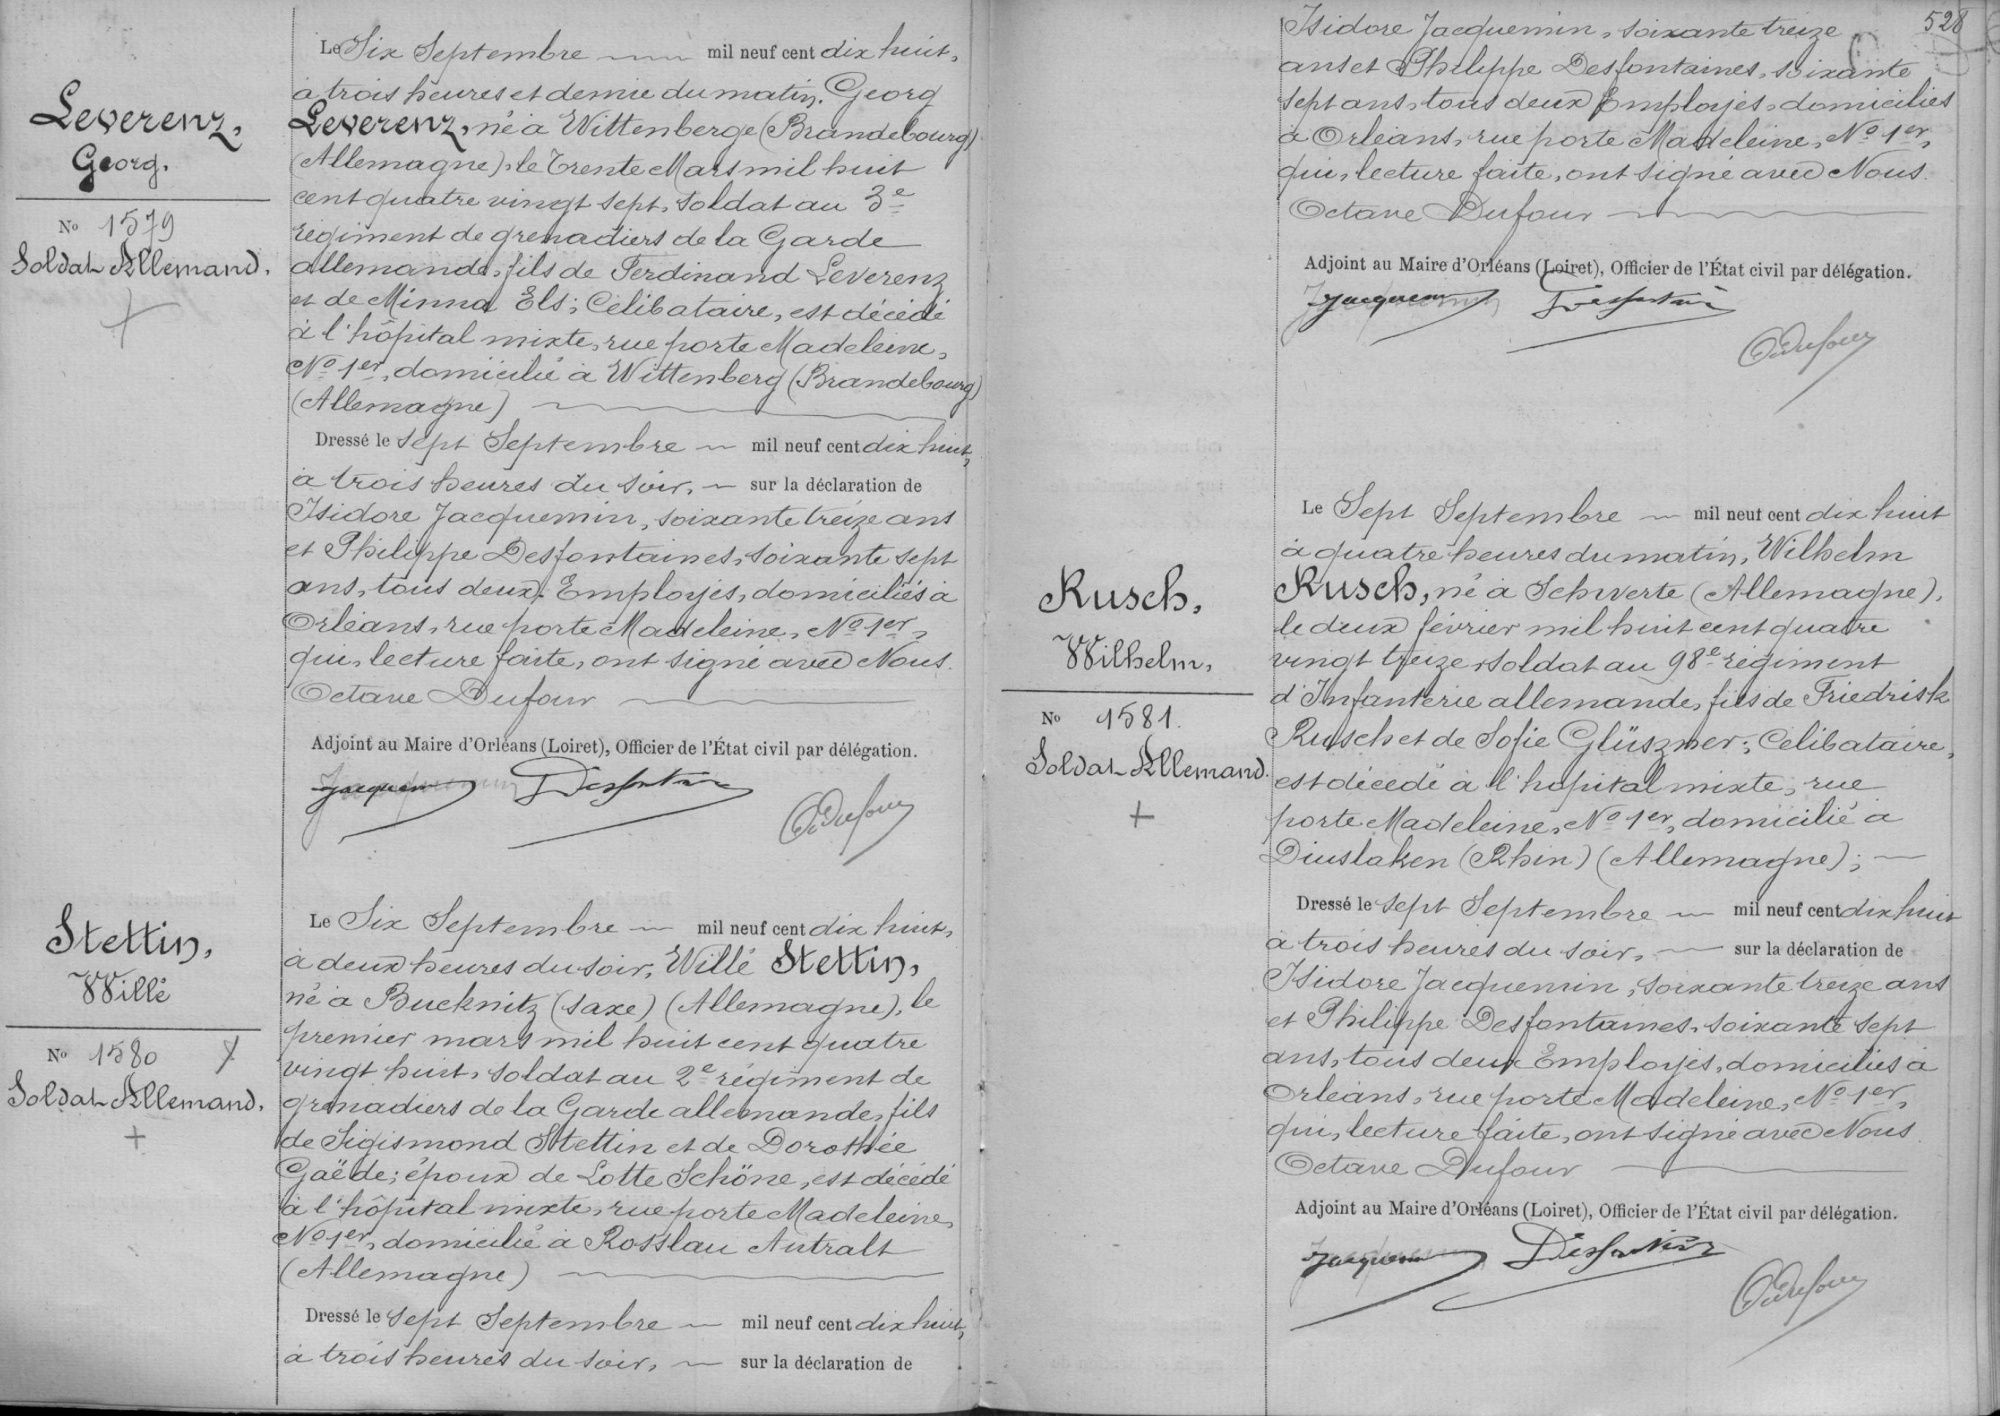 Leverenz,
Georg.
No 1579
Soldat Allemand.
Le Six Septembre mil neuf cent dix huit,
à trois heures et demie du matin. Georg
Leverenz, né à Wittenberge (Brandebourg)
(Allemagne), le Trente Mars mil huit
cent quatre vingt sept, soldat au 3e
régiment de grenadiers de la Garde
allemande, fils de Ferdinand Leverenz
et de Minna Els; Célibataire, est décédé
à l'hôpital mixte, rue porte Madeleine,
No 1er, domicilié à Wittenberg (Brandebourg)
(Allemagne)
Dressé le sept Septembre mil neuf cent dix huit,
à trois heures du soir, sur la déclaration de
Isidore Jacquemin, soixante treize ans
et Philippe Desfontaines, soixante sept
ans, tous deux Employés, domiciliés à
Orléans, rue porte Madeleine, No 1er,
qui, lecture faite, ont signé avec Nous.
Octave Dufour
Adjoint au Maire d'Orléans (Loiret), Officier de l'État civil par délégation.
Jacquemin Desfontaines
O. Dufour
Stettin,
Willé
No 1580
Soldat Allemand.
Le Six Septembre mil neuf cent dix huit,
à deux heures du soir, Willé Stettin,
né à Bucknitz (Saxe) (Allemagne), le
premier mars mil huit cent quatre
vingt huit, soldat au 2e régiment de
grenadiers de la Garde allemande, fils
de Sigismond Stettin et de Dorothée
Gaëde; époux de Lotte Schöne, est décédé
à l'hôpital mixte, rue porte Madeleine,
No 1er, domicilié à Rosslau Antralt
(Allemagne)
Dressé le sept Septembre mil neuf cent dix huit,
à trois heures du soir, sur la déclaration de
528
Isidore Jacquemin, soixante treize
ans et Philippe Desfontaines, soixante
sept ans, tous deux Employés, domiciliés
à Orléans, rue porte Madeleine, No 1er,
qui, lecture faite, ont signé avec Nous.
Octave Dufour
Adjoint au Maire d'Orléans (Loiret), Officier de l'État civil par délégation.
Jacquemin Desfontaines
O. Dufour
Rusch,
Wilhelm,
No 1581.
Soldat Allemand.
Le Sept Septembre mil neuf cent dix huit
à quatre heures du matin, Wilhelm
Rusch, né à Schwerte (Allemagne),
le deux février mil huit cent quatre
vingt treize, soldat au 98e régiment
d'Infanterie allemande, fils de Friedrisk
Rusch et de Sofie Glüszner; Célibataire,
est décédé à l'hôpital mixte, rue
porte Madeleine, No 1er, domicilié à
Diuslaken (Rhin) (Allemagne);
Dressé le sept Septembre mil neuf cent dix huit
à trois heures du soir, sur la déclaration de
Isidore Jacquemin, soixante treize ans
et Philippe Desfontaines, soixante sept
ans, tous deux Employés, domiciliés à
Orléans, rue porte Madeleine, No 1er,
qui, lecture faite, ont signé avec Nous.
Octave Dufour
Adjoint au Maire d'Orléans (Loiret), Officier de l'État civil par délégation.
Jacquemin Desfontaines
O. Dufour